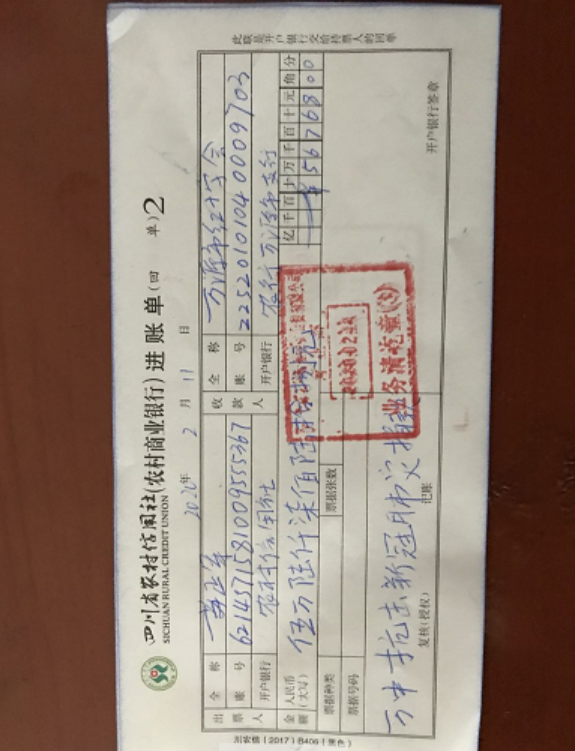 四川省农村信用社(农村商业银行)进账单(回 单) 2
SICHUAN RURAL CREDIT UNION
2020年 2 月 11 日
出票人 全 称
账 号 6214571581009555367
开户银行 农村信用社
收款人 全 称 万源市红十字会
账 号 22520101040009703
开户银行 农行万源市支行
金额 人民币(大写) 伍万陆仟柒佰陆拾捌元
亿 千 百 十 万 千 百 十 元 角 分
¥ 5 6 7 6 8 0 0
票据种类 票据张数
票据号码
万中抗击新冠肺炎捐款
复核(授权) 记账
开户银行签章
2020.02.11
业务清讫章
此联是开户银行交给持票人的回单